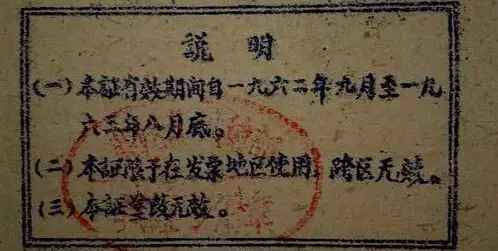 説明
(一)本証有效期间自一九六二年九月至一九
六三年八月底。
(二)本証限予在发票地区使用，跨区无效。
(三)本証塗改无效。